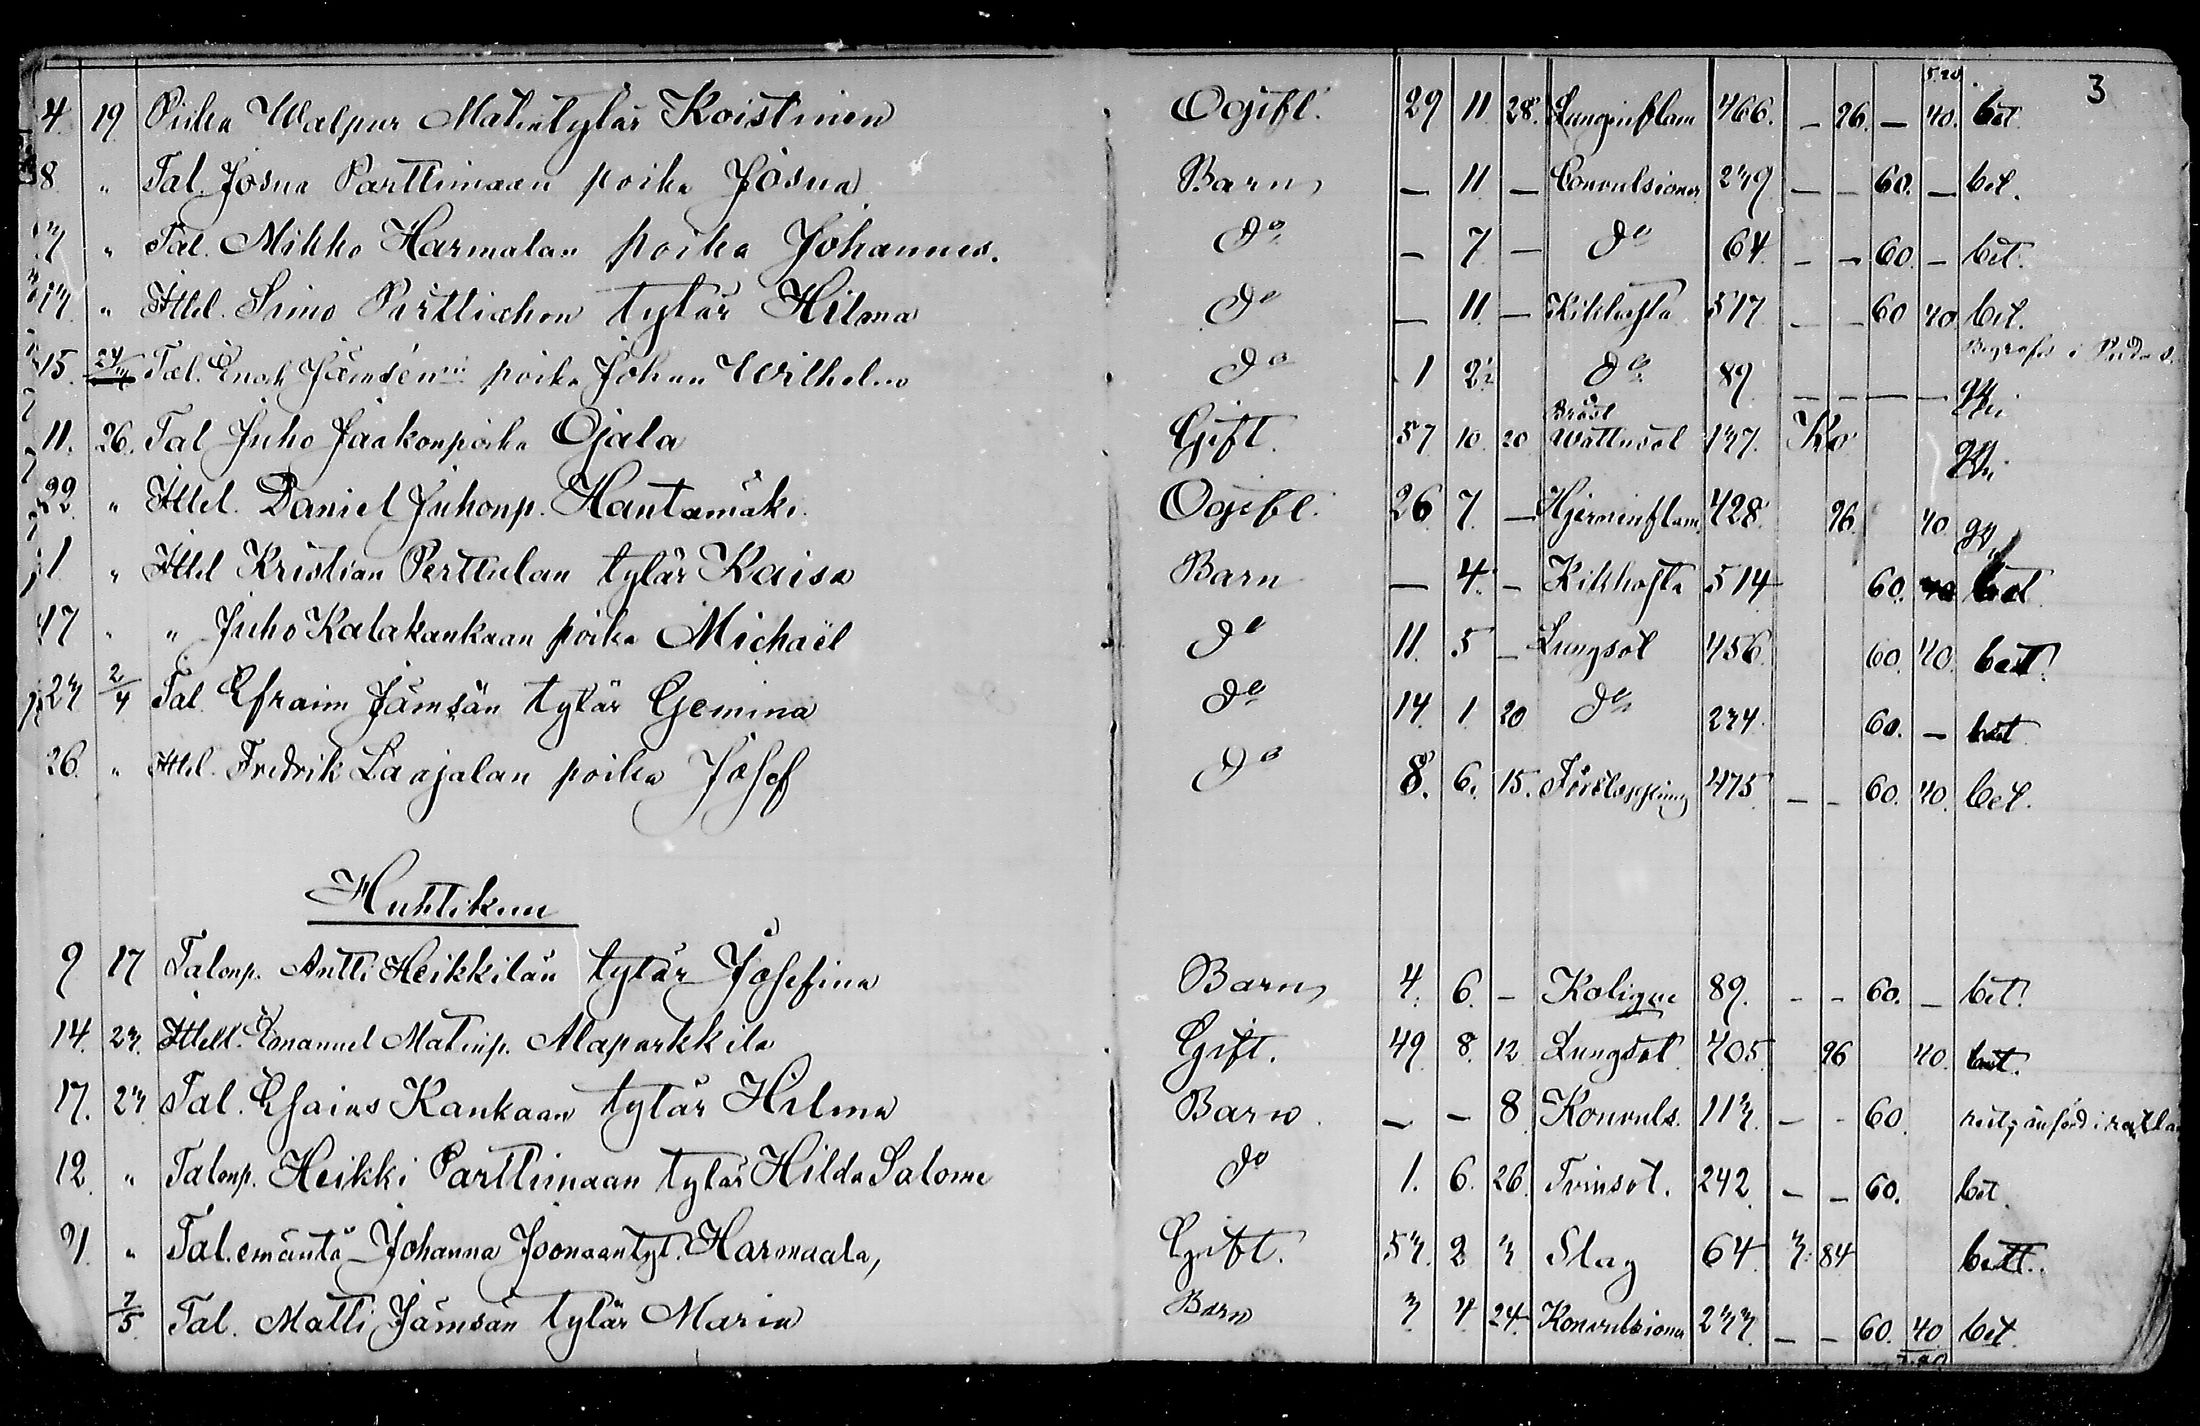 5 20 3
4. 19 Piika Walpur Matintytär Koistinen Ogift. 29 11 28. Lunginflam 466. — 96. — 40. bet.
8 " Tal. Josua Parttimaan poika Josua Barn — 11 — Convulsioner 239 — — 60. — bet.
" Tal. Mikko Harmalan poika Johannes. do — 7 — do 64 — — 60. — bet.
" Ittel. Simo Perttuchon tytär Hilma do — 11. — Kikhosta 517 — — 60 40 bet.
15. Tal. Enok Jämsén poika Johan Wilhelm do 1 2½ do 89 — — — — Begrafd i
11. 26. Tal Juho Jaakonpoika Ojala Gift. 57 10 20 Bröst Wattusot 137. Ko
22 " Ittel. Daniel Juhonp. Hautamäki. Ogift. 26 7. — Hjerninflam. 428. 96 40
1 " Ittel Kristian Perttulan tytär Kaisa Barn — 4. — Kikhosta 514 60. 40 bet.
47 " " Juho Kalakankaan poika Michaël do 11. 5 — Lungsot 456. 60. 40. bet.
23 2/4 Tal. Efraim Jämsän tytär Gemina do 14. 1. 20 do 234. 60. — bet
26. " Ittel. Fredrik Laajalan poika Josef do 8. 6. 15. Förstoppning 475 — — 60. 40. bet.
Huhtikuu
9 17 Talonp. Antti Heikkilän tytär Josefina Barn 4. 6. — Kolique 89. — — 60. — bet.
14. 23. Ittell. Emanuel Matinp. Alaparkkila Gift. 49 8. 12 Lungsot 405 96 40. bet.
17. 23 Tal. Esaias Kankaan tytär Hilma Barn. — — 8 Konvuls. 113. — — 60.
12. " Talonp. Heikki Parttimaan tytär Hilda Salome do 1. 6. 26. Tvinsot. 242 — — 60. bet.
21. " Tal. emäntä Johanna Joonaantyt. Harmaala, Gift. 53. 2 3 Slag 64 3. 84 bett.
7/5 Tal. Matti Jämsän tytär Maria Barn 3 4 24 Konvulsioner 233. — — 60. 40. bet.